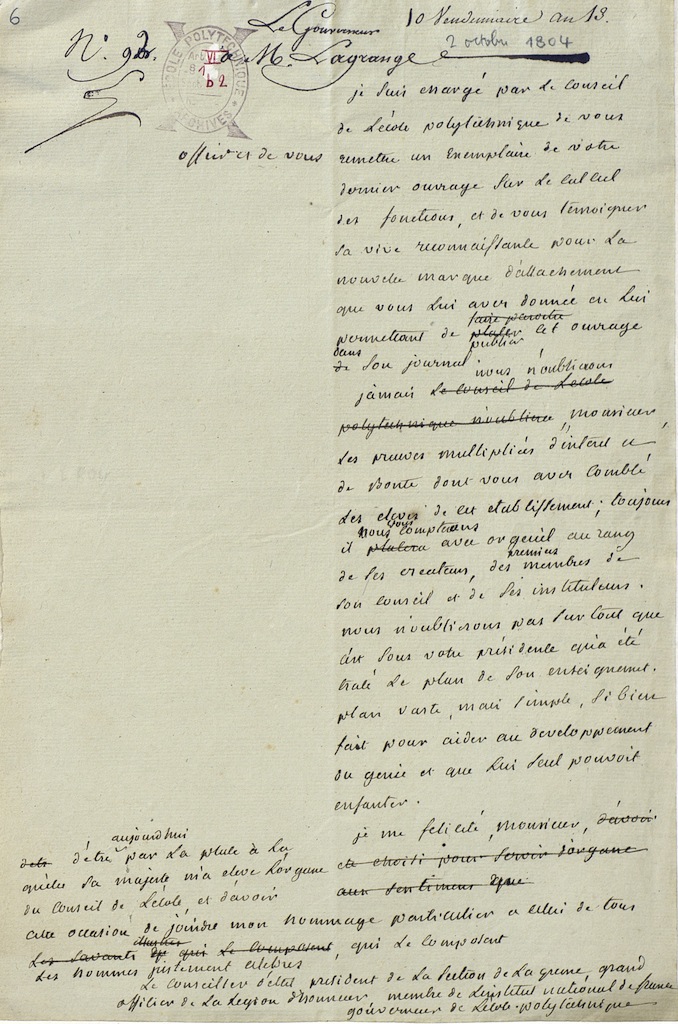 6
Le Gouverneur
10 Vendemiaire an 13.
2 octobre 1804
N. 92.
à M. Lagrange
ÉCOLE POLYTECHNIQUE
ARCHIVES
VI
1
b 2
je suis chargé par Le Conseil
de L'école polytechnique de vous
offrir et de vous
remettre un Exemplaire de votre
dernier ouvrage sur Le Calcul
des fonctions, et de vous témoigner
sa vive reconnaissance pour La
nouvelle marque d'attachement
que vous Lui avez donnée en Lui
faire paroitre
permettant de placer cet ouvrage
publier
dans
de son journal
nous n'oublierons
jamais Le Conseil de L'école
polytechnique n'oubliera, monsieur,
Les preuves multipliées d'interet et
de Bonté dont vous avez Comblé
Les eleves de cet etablissement; toujours
nous vous compterons
il placera avec orgeuil au rang
premiers
de ses createurs, des membres de
son conseil et de ses instituteurs.
nous n'oublierons pas surtout que
c'est sous votre présidence qu'a été
tracé Le plan de son enseignemt.
plan vaste, mais simple, si bien
fait pour aider au developpement
du genie et que Lui seul pouvoit
enfanter.
je me felicite, monsieur, d'avoir
ete choisi pour servir d'organe
aux sentimens que
aujourdhui
d'être par La place à La
quelle sa majesté m'a elevé L'organe
du Conseil de L'école, et d'avoir
cette occasion de joindre mon hommage particulier a celui de tous
Les savants qui Le composent, qui Le composent
Les hommes justement celebres
Le Conseiller d'état président de La Section de La guerre, grand
officier de La Legion d'honneur, membre de L'institut national de france
gouverneur de L'école polytechnique